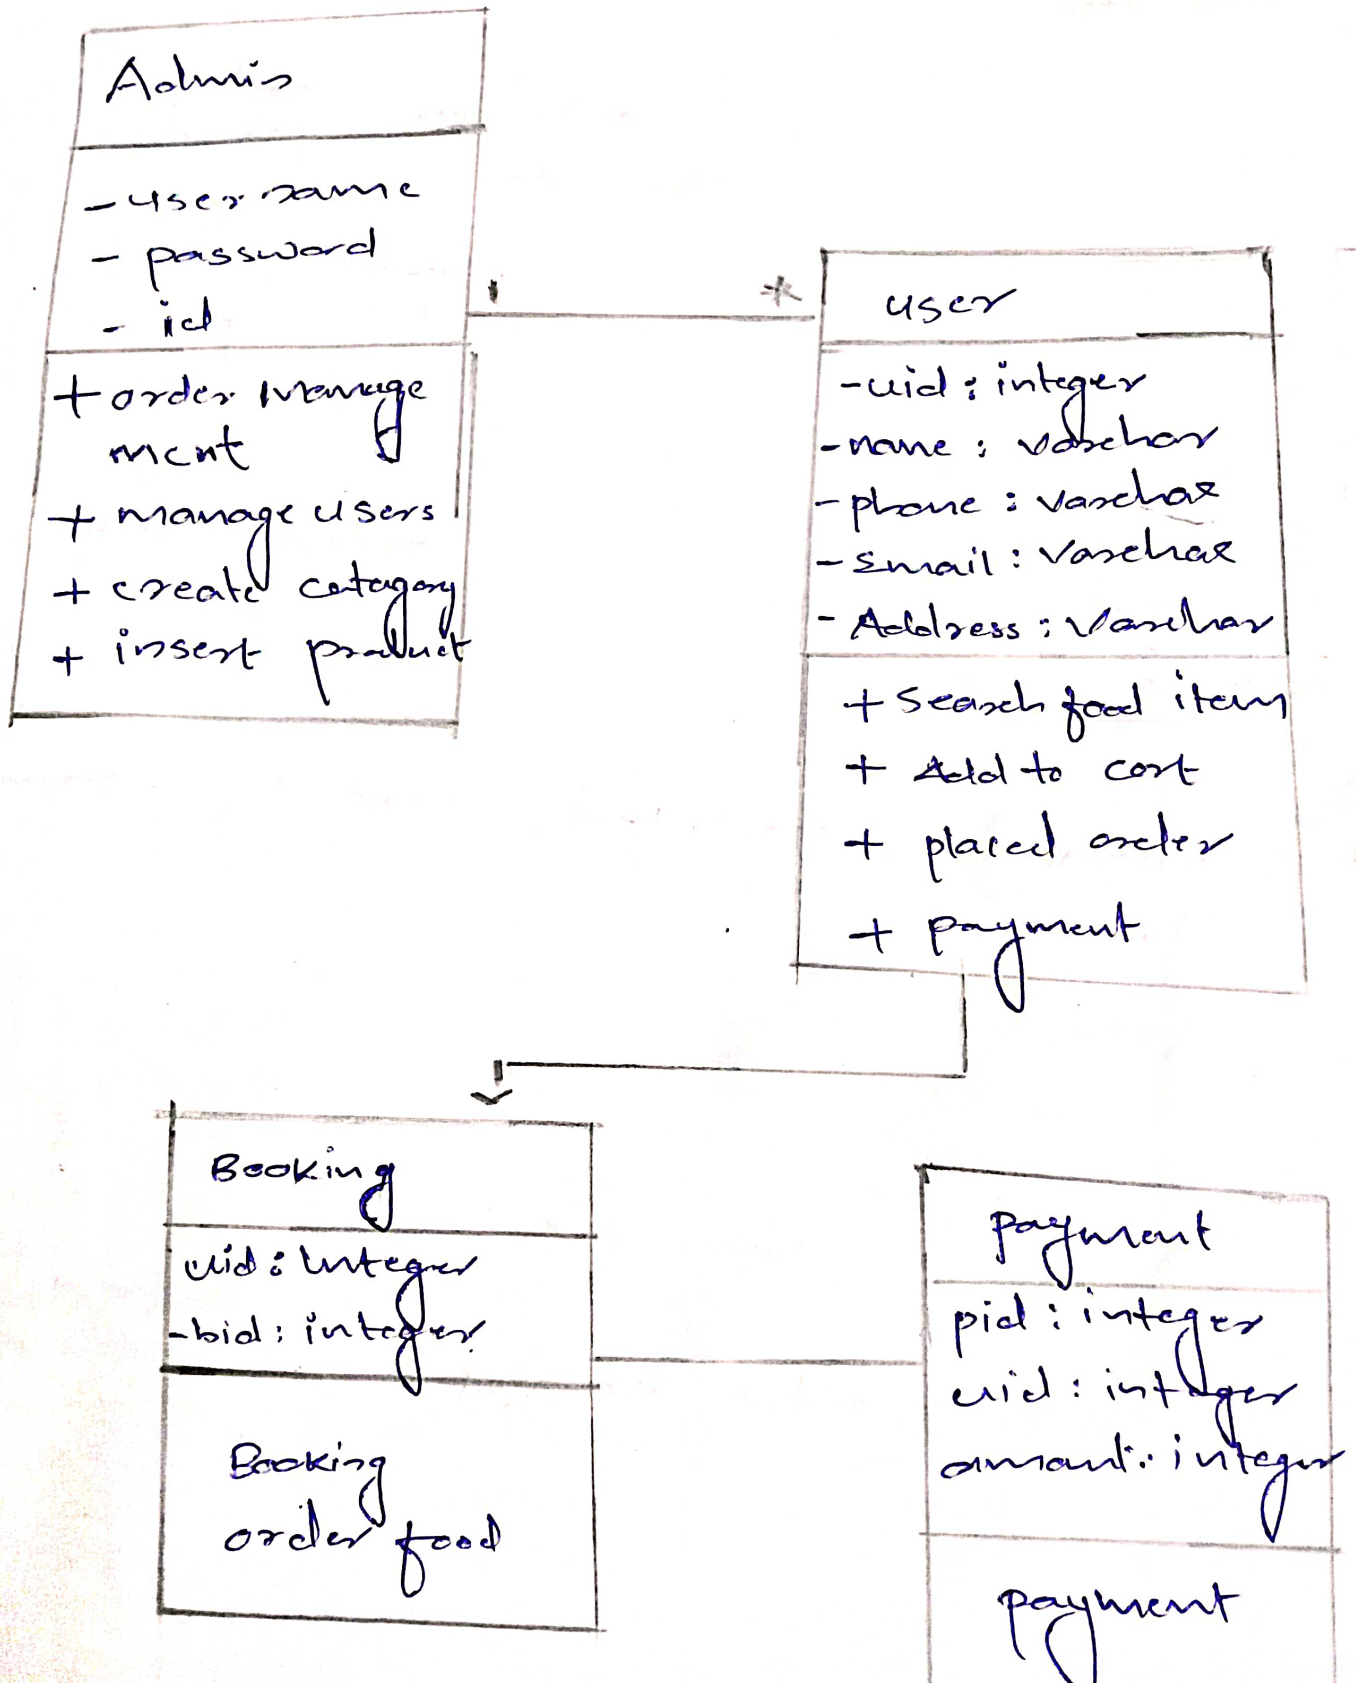 Admin
- username
- password
- id
+ order Manage
ment
+ manage users
+ create catagory
+ insert product
1 *
user
- uid : integer
- name : varchar
- phone : varchar
- Email : Varchar
- Address : Varchar
+ Search food item
+ Add to cart
+ placed order
+ payment
Booking
uid : Integer
- bid : integer
Booking
order food
payment
pid : integer
uid : integer
amount : integer
payment